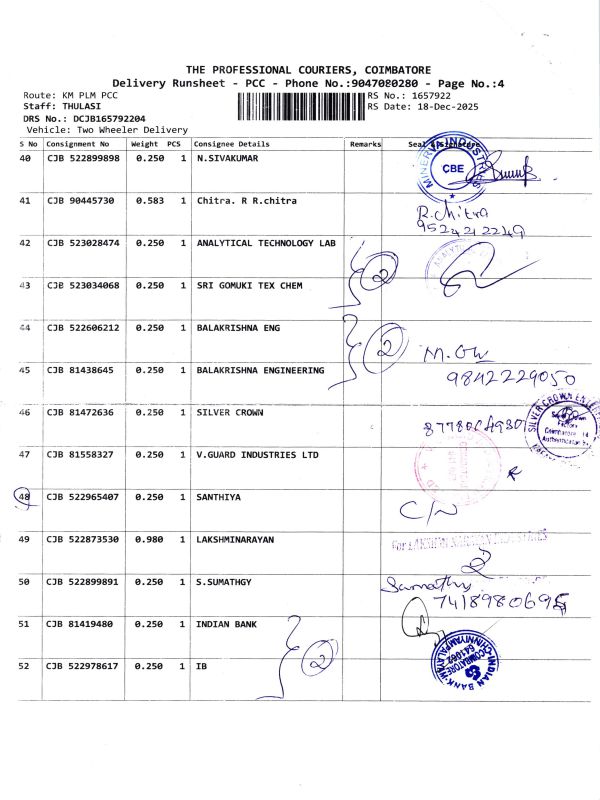 THE PROFESSIONAL COURIERS, COIMBATORE
Delivery Runsheet - PCC - Phone No.:9047080280 - Page No.:4
Route: KM PLM PCC RS No.: 1657922
Staff: THULASI RS Date: 18-Dec-2025
DRS No.: DCJB165792204
Vehicle: Two Wheeler Delivery
S No Consignment No Weight PCS Consignee Details Remarks Seal & Signature
40 CJB 522899898 0.250 1 N.SIVAKUMAR MINERVA INDUSTRIES CBE
41 CJB 90445730 0.583 1 Chitra. R R.chitra R.chitra
9524212249
42 CJB 523028474 0.250 1 ANALYTICAL TECHNOLOGY LAB
2
43 CJB 523034068 0.250 1 SRI GOMUKI TEX CHEM
44 CJB 522606212 0.250 1 BALAKRISHNA ENG
2
45 CJB 81438645 0.250 1 BALAKRISHNA ENGINEERING 9842229050
46 CJB 81472636 0.250 1 SILVER CROWN SILVER CROWN
Coimbatore 14
47 CJB 81558327 0.250 1 V.GUARD INDUSTRIES LTD
48 CJB 522965407 0.250 1 SANTHIYA C/N
49 CJB 522873530 0.980 1 LAKSHMINARAYAN For
50 CJB 522899891 0.250 1 S.SUMATHGY Sumathy
7418980695
51 CJB 81419480 0.250 1 INDIAN BANK
2
52 CJB 522978617 0.250 1 IB INDIAN BANK CHINNIYAMPALAYAM COIMBATORE 641062